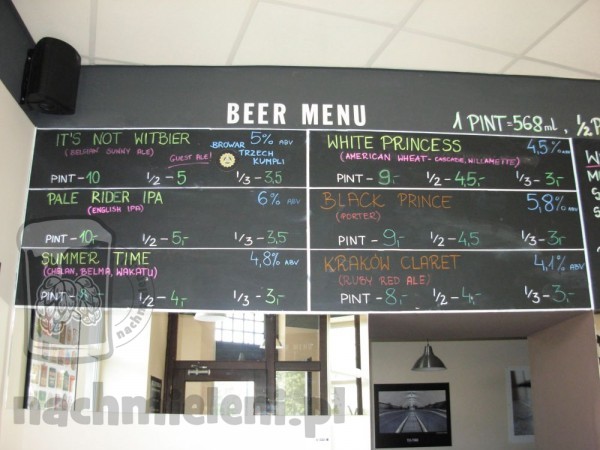 BEER MENU
1 PINT=568ml, ½ P
IT'S NOT WITBIER 5% ABV
(BELGIAN SUNNY ALE) GUEST ALE!
BROWAR
TRZECH
KUMPLI
PINT - 10 1/2 - 5 1/3 - 3,5
PALE RIDER IPA 6% ABV
(ENGLISH IPA)
PINT - 10,- 1/2 - 5,- 1/3 - 3,5
SUMMER TIME 4,8% ABV
(CHELAN, BELMA, WAKATU)
PINT - 8 1/2 - 4,- 1/3 - 3,-
WHITE PRINCESS 4,5% ABV
(AMERICAN WHEAT - CASCADE, WILLAMETTE)
PINT - 9,- 1/2 - 4,5,- 1/3 - 3,-
BLACK PRINCE 5,8%
(PORTER)
PINT - 9,- 1/2 - 4,5 1/3 - 3,-
KRAKÓW CLARET 4,4% ABV
(RUBY RED ALE)
PINT - 8,- 1/2 - 4,- 1/3 - 3,-
nachmieleni.pl